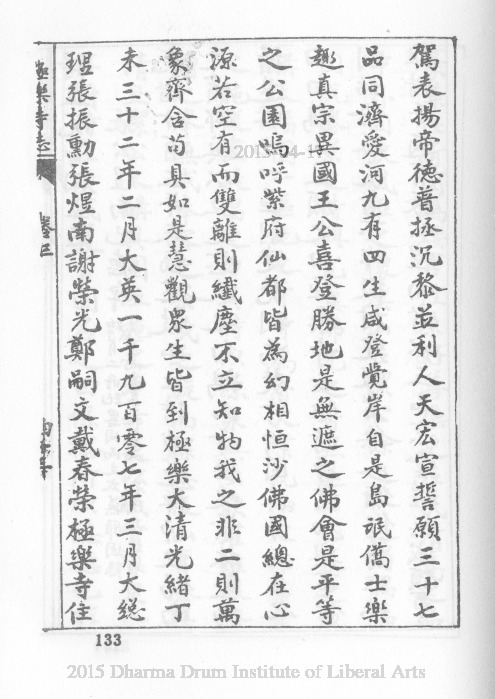 駕表揚帝德普拯沉黎並利人天宏宣誓願三十七
品同濟愛河九有四生咸登覺岸自是島氓僑士樂
趣真宗異國王公喜登勝地是無遮之佛會是平等
之公園嗚呼紫府仙都皆為幻相恒沙佛國總在心
源若空有而雙離則纖塵不立知物我之非二則萬
象齊含苟具如是慧觀眾生皆到極樂大清光緒丁
未三十二年二月大英一千九百零七年三月大總
理張振勳張煜南謝榮光鄭嗣文戴春榮極樂寺住
極樂寺志
卷三
133
2013-04-1
2015 Dharma Drum Institute of Liberal Arts